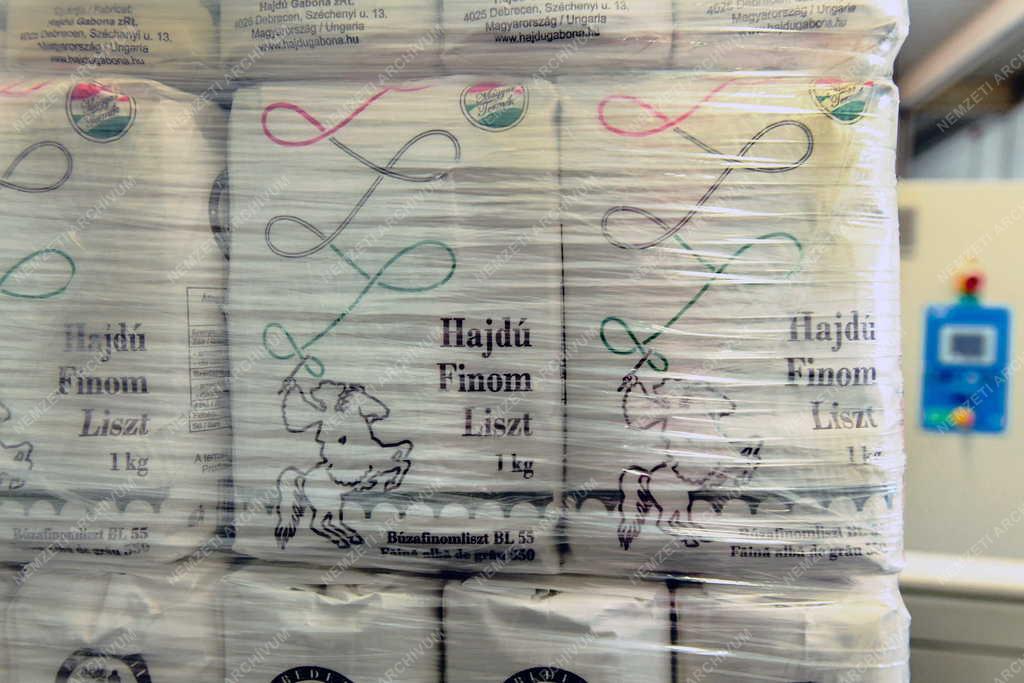 Hajdú Gabona zRt.
4025 Debrecen, Széchenyi u. 13.
Magyarország / Ungaria
www.hajdugabona.hu
Hajdú Gabona zRt.
4025 Debrecen, Széchenyi u. 13.
Magyarország / Ungaria
www.hajdugabona.hu
4025 Debrecen, Széchenyi u. 13.
Magyarország / Ungaria
www.hajdugabona.hu
4025 Debrecen, Széchenyi u. 13.
Magyarország / Ungaria
www.hajdugabona.hu
Magyar
Termék
Hajdú
Finom
Liszt
1 kg
Búzafinomliszt BL 55
Hajdú
Finom
Liszt
1 kg
Búzafinomliszt BL 55
Făină albă de grâu 550
Hajdú
Finom
Liszt
1 kg
Búzafinomliszt BL
Făină albă de grâu
NEMZETI ARCHÍVUM